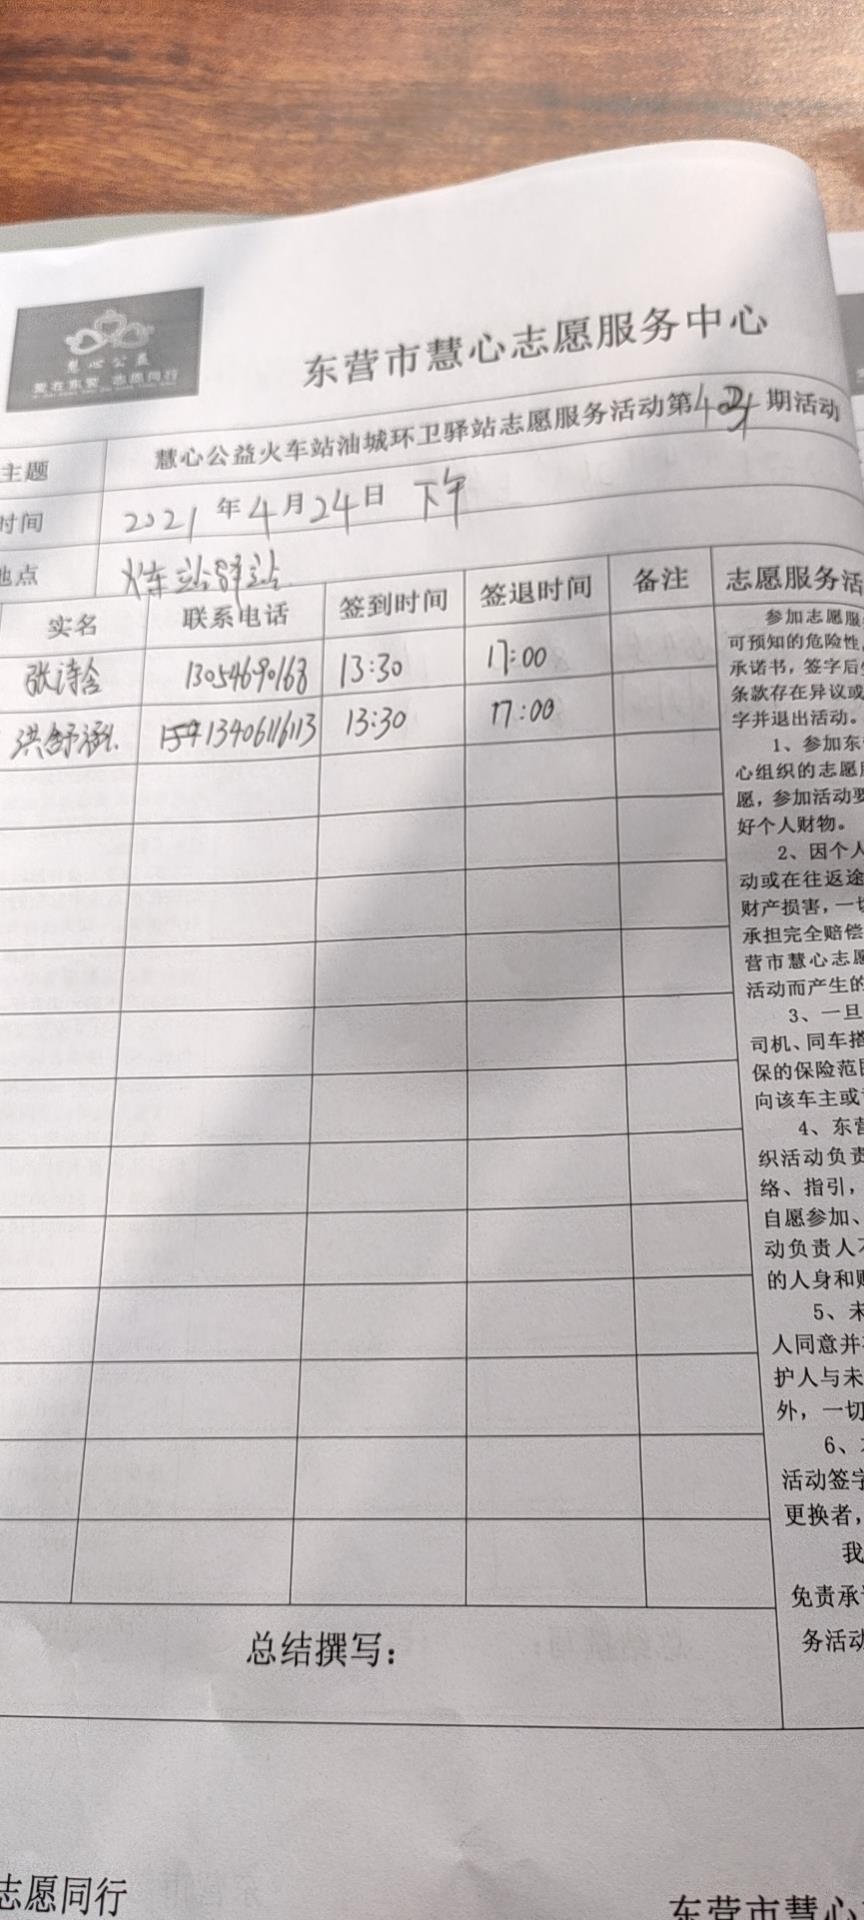 慧心公益
爱在东营 志愿同行
东营市慧心志愿服务中心
主题 慧心公益火车站油城环卫驿站志愿服务活动第 期活动
时间 2021年4月24日 下午
地点 火车站驿站
实名 联系电话 签到时间 签退时间 备注 志愿服务活
张诗含 13054690168 13:30 17:00
洪舒涵 13406116113 13:30 17:00
参加志愿服
可预知的危险性,
承诺书,签字后
条款存在异议或
字并退出活动。
1、参加东
心组织的志愿
愿,参加活动要
好个人财物。
2、因个人
动或在往返途
财产损害,一切
承担完全赔偿
营市慧心志愿
活动而产生的
3、一旦
司机、同车搭
保的保险范围
向该车主或
4、东营
织活动负责
络、指引,
自愿参加、
动负责人不
的人身和财
5、未
人同意并
护人与未
外,一切
6、
活动签字
更换者,
我
免责承诺
务活动
总结撰写:
志愿同行
东营市慧心